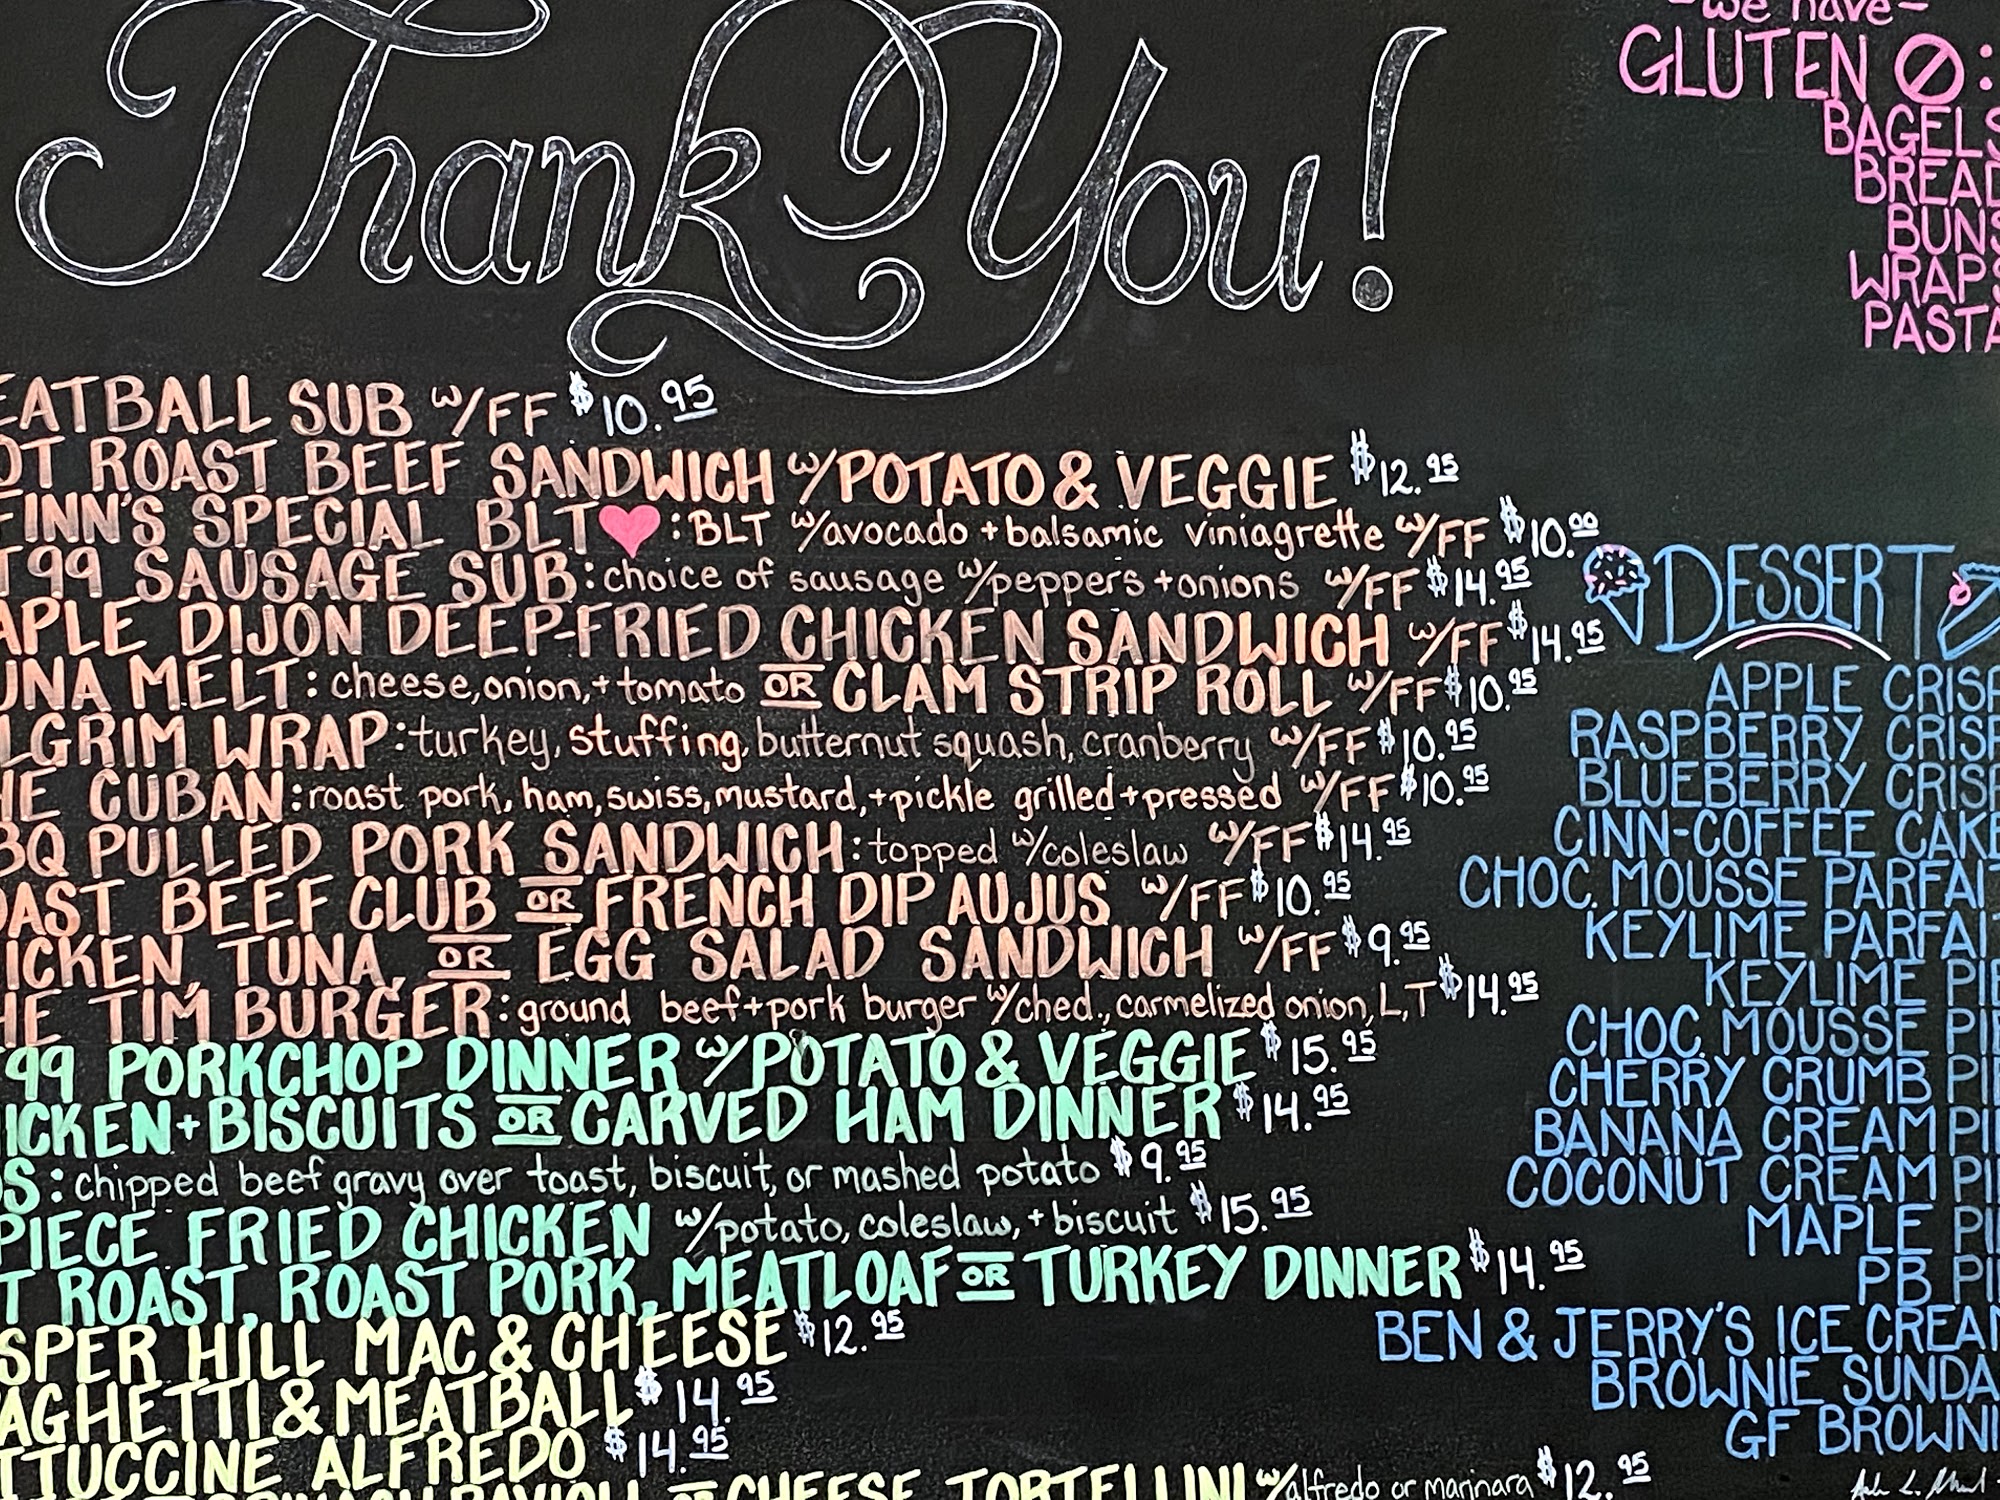 Thank You!
EATBALL SUB w/FF $10.95
OT ROAST BEEF SANDWICH w/POTATO & VEGGIE $12.95
FINN'S SPECIAL BLT: BLT w/avocado + balsamic viniagrette w/FF $10.00
T 99 SAUSAGE SUB: choice of sausage w/peppers + onions w/FF $14.95
APLE DIJON DEEP-FRIED CHICKEN SANDWICH w/FF $14.95
UNA MELT: cheese, onion, + tomato OR CLAM STRIP ROLL w/FF $10.95
LGRIM WRAP: turkey, stuffing, butternut squash, cranberry w/FF $10.95
HE CUBAN: roast pork, ham, swiss, mustard, + pickle grilled + pressed w/FF $10.95
BQ PULLED PORK SANDWICH: topped w/coleslaw w/FF $14.95
OAST BEEF CLUB OR FRENCH DIP AUJUS w/FF $10.95
ICKEN, TUNA, OR EGG SALAD SANDWICH w/FF $9.95
HE TIM BURGER: ground beef + pork burger w/ched., carmelized onion, L, T $14.95
99 PORKCHOP DINNER w/POTATO & VEGGIE $15.95
ICKEN + BISCUITS OR CARVED HAM DINNER $14.95
OS: chipped beef gravy over toast, biscuit, or mashed potato $9.95
PIECE FRIED CHICKEN w/potato, coleslaw, + biscuit $15.95
T ROAST, ROAST PORK, MEATLOAF OR TURKEY DINNER $14.95
SPER HILL MAC & CHEESE $12.95
AGHETTI & MEATBALL $14.95
TTUCCINE ALFREDO $14.95
RAVIOLI OR CHEESE TORTELLINI w/alfredo or marinara $12.95
-we have-
GLUTEN :
BAGELS
BREAD
BUNS
WRAPS
PASTA
DESSERT
APPLE CRISP
RASPBERRY CRISP
BLUEBERRY CRISP
CINN-COFFEE CAKE
CHOC. MOUSSE PARFAIT
KEYLIME PARFAIT
KEYLIME PIE
CHOC. MOUSSE PIE
CHERRY CRUMB PIE
BANANA CREAM PIE
COCONUT CREAM PIE
MAPLE PI
PB PI
BEN & JERRY'S ICE CREAM
BROWNIE SUNDA
GF BROWNI